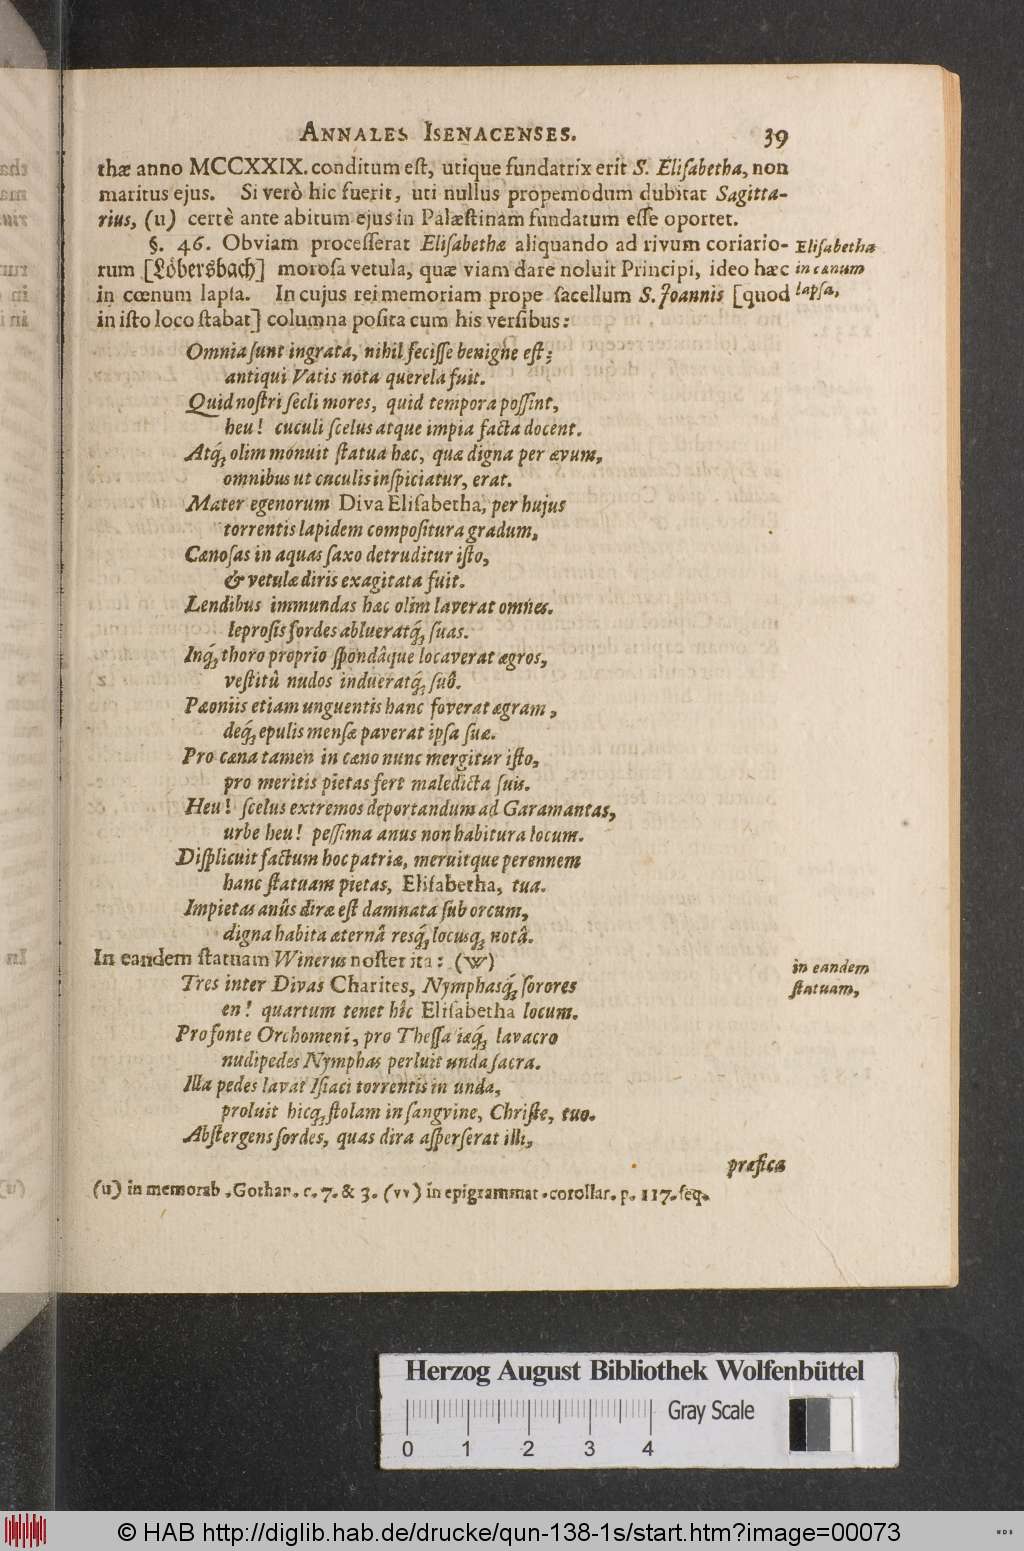 ANNALES ISENACENSES. 39
thæ anno MCCXXIX. conditum eſt, utique fundatrix erit S. Eliſabetha, non
maritus ejus. Si verò hic fuerit, uti nullus propemodum dubitat Sagitta-
rius, (u) certè ante abitum ejus in Palæſtinam fundatum eſſe oportet.
§. 46. Obviam proceſſerat Eliſabethæ aliquando ad rivum coriario-
rum [Löbersbach] moroſa vetula, quæ viam dare noluit Principi, ideo hæc
in cœnum lapſa. In cujus rei memoriam prope ſacellum S. Joannis [quod
in iſto loco ſtabat] columna poſita cum his verſibus:
Eliſabetha
in cænum
lapſa,
Omnia ſunt ingrata, nihil feciſſe benigne eſt;
antiqui Vatis nota querela fuit.
Quid noſtri ſecli mores, quid tempora poſſint,
heu! cuculi ſcelus atque impia facta docent.
Atq́; olim monuit ſtatua hæc, quæ digna per ævum,
omnibus ut cuculis inſpiciatur, erat.
Mater egenorum Diva Eliſabetha, per hujus
torrentis lapidem compoſitura gradum,
Cænoſas in aquas ſaxo detruditur iſto,
& vetulæ diris exagitata fuit.
Lendibus immundas hæc olim laverat omnes.
leproſis ſordes ablueratq́; ſuas.
Inq́; thoro proprio ſpondâque locaverat ægros,
veſtitû nudos indueratq́; ſuô.
Pæoniis etiam unguentis hanc foverat ægram,
deq́; epulis menſæ paverat ipſa ſuæ.
Pro cæna tamen in cæno nunc mergitur iſto,
pro meritis pietas fert maledicta ſuis.
Heu! ſcelus extremos deportandum ad Garamantas,
urbe heu! peſſima anus non habitura locum.
Diſplicuit factum hoc patriæ, meruitque perennem
hanc ſtatuam pietas, Eliſabetha, tua.
Impietas anûs diræ eſt damnata ſub orcum,
digna habita æternâ resq́; locusq; notâ.
In eandem ſtatuam Winerus noſter ita: (w)
in eandem
ſtatuam,
Tres inter Divas Charites, Nymphasq́; ſorores
en! quartum tenet hîc Eliſabetha locum.
Pro fonte Orchomeni, pro Theſſaliaq́; lavacro
nudipedes Nymphas perluit unda ſacra.
Illa pedes lavat Iſiaci torrentis in unda,
proluit hicq; ſtolam in ſangvine, Chriſte, tuo.
Abſtergens ſordes, quas dira aſperſerat illi,
præfica
(u) in memorab. Gothan. c. 7. & 3. (vv) in epigrammat. corollar. p. 117. ſeq.
Herzog August Bibliothek Wolfenbüttel
Gray Scale
0 1 2 3 4
© HAB http://diglib.hab.de/drucke/qun-138-1s/start.htm?image=00073